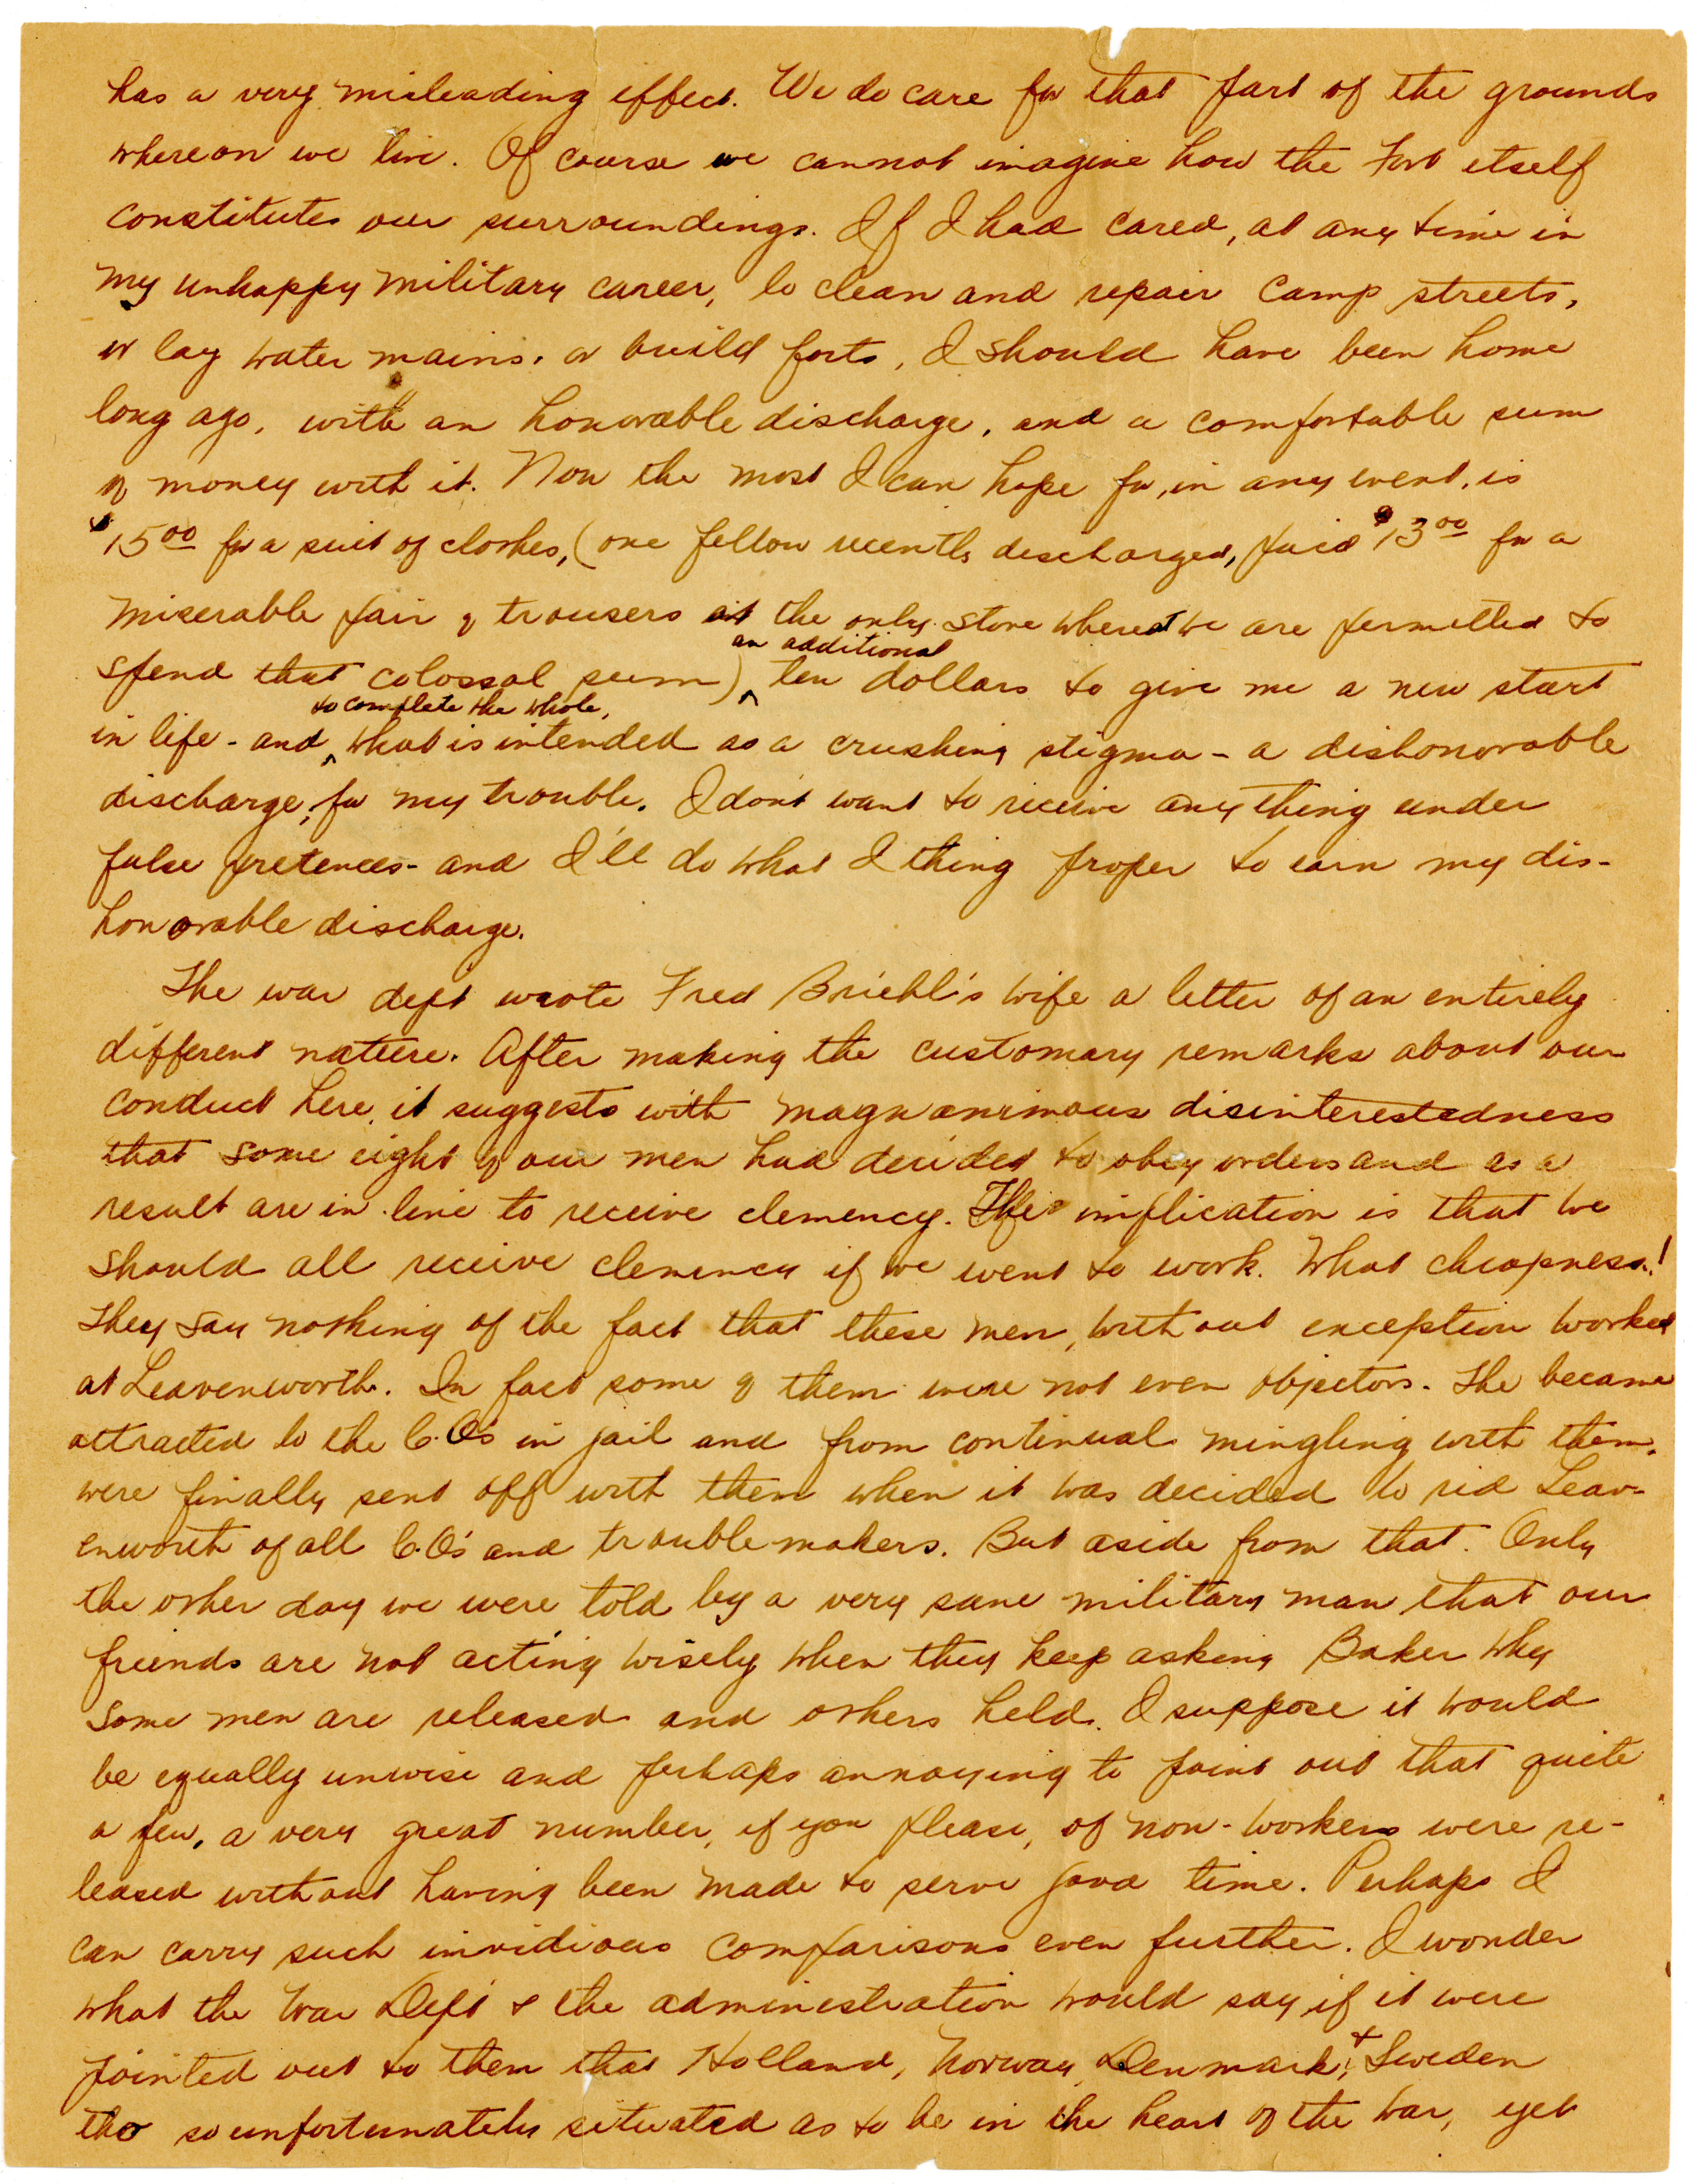 has a very misleading effect. We do care for that part of the grounds
whereon we live. Of course we cannot imagine how the Fort itself
constitutes our surroundings. If I had cared, at any time in
my unhappy military career, to clean and repair camp streets,
or lay water mains, or build forts, I should have been home
long ago, with an honorable discharge, and a comfortable sum
of money with it. Now the most I can hope for, in any event, is
$1500 for a suit of clothes, (one fellow recently discharged, paid $1300 for a
miserable pair of trousers at the only store whereat we are permitted to
an additional
spend that colossal sum) ^ ten dollars to give me a new start
to complete the whole,
in life - and ^ what is intended as a crushing stigma - a dishonorable
discharge, for my trouble. I don't want to receive anything under
false pretences - and I'll do what I thing proper to earn my dis-
honorable discharge.
The war dept wrote Fred Briehl's wife a letter of an entirely
different nature. After making the customary remarks about our
conduct here, it suggests with magnanimous disinterestedness
that some eight of our men had decided to obey orders and as a
result are in line to receive clemency. The implication is that we
should all receive clemency if we went to work. What cheapness!
They say nothing of the fact that these men, without exception worked
at Leavenworth. In fact some of them were not even objectors. The became
attracted to the C.O's in jail and from continual mingling with them,
were finally sent off with them when it was decided to rid Leav-
enworth of all C.O's and trouble-makers. But aside from that. Only
the other day we were told by a very sane military man that our
friends are not acting wisely when they keep asking Baker why
some men are released and others held. I suppose it would
be equally unwise and perhaps annoying to point out that quite
a few, a very great number, if you please, of non-workers were re-
leased without having been made to serve good time. Perhaps I
can carry such invidious comparisons even further. I wonder
what the War Dept & the administration would say if it were
pointed out to them that Holland, Norway, Denmark, & Sweden
tho so unfortunately situated as to be in the heart of the war, yet